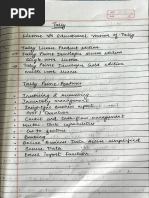 Tally
License V/s Educational Version of Tally
Tally License Product edition
Tally Prime Developer silver edition
Single user license
Tally Prime Developer Gold edition
Multi user license
Tally Prime Features
Invoicing & Accounting
Inventory management
Insightful business report
GST / Taxation
Credit and cash flow management
Multi task capabilities
Go to feature
Banking
Online Business Data Access simplified
Secure Data
Excel import function